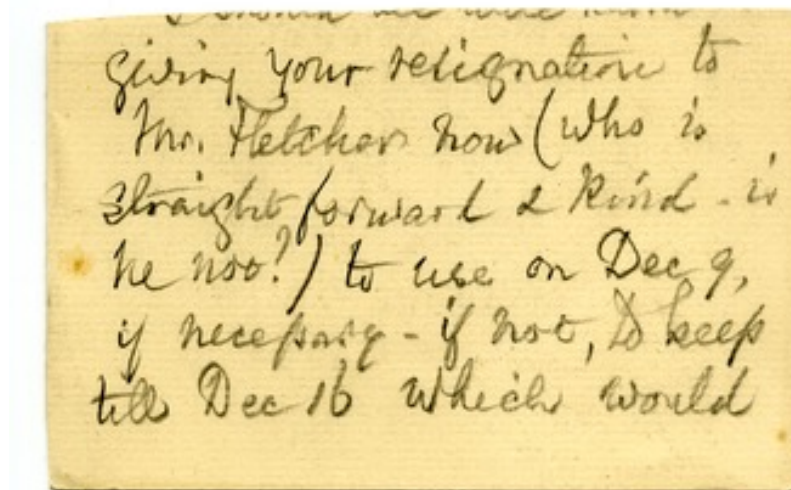 giving your resignation to
Mr. Fletcher now (who is
straight forward & kind - is
he not?) to use on Dec 9,
if necessary - if not, to keep
till Dec 16 which would